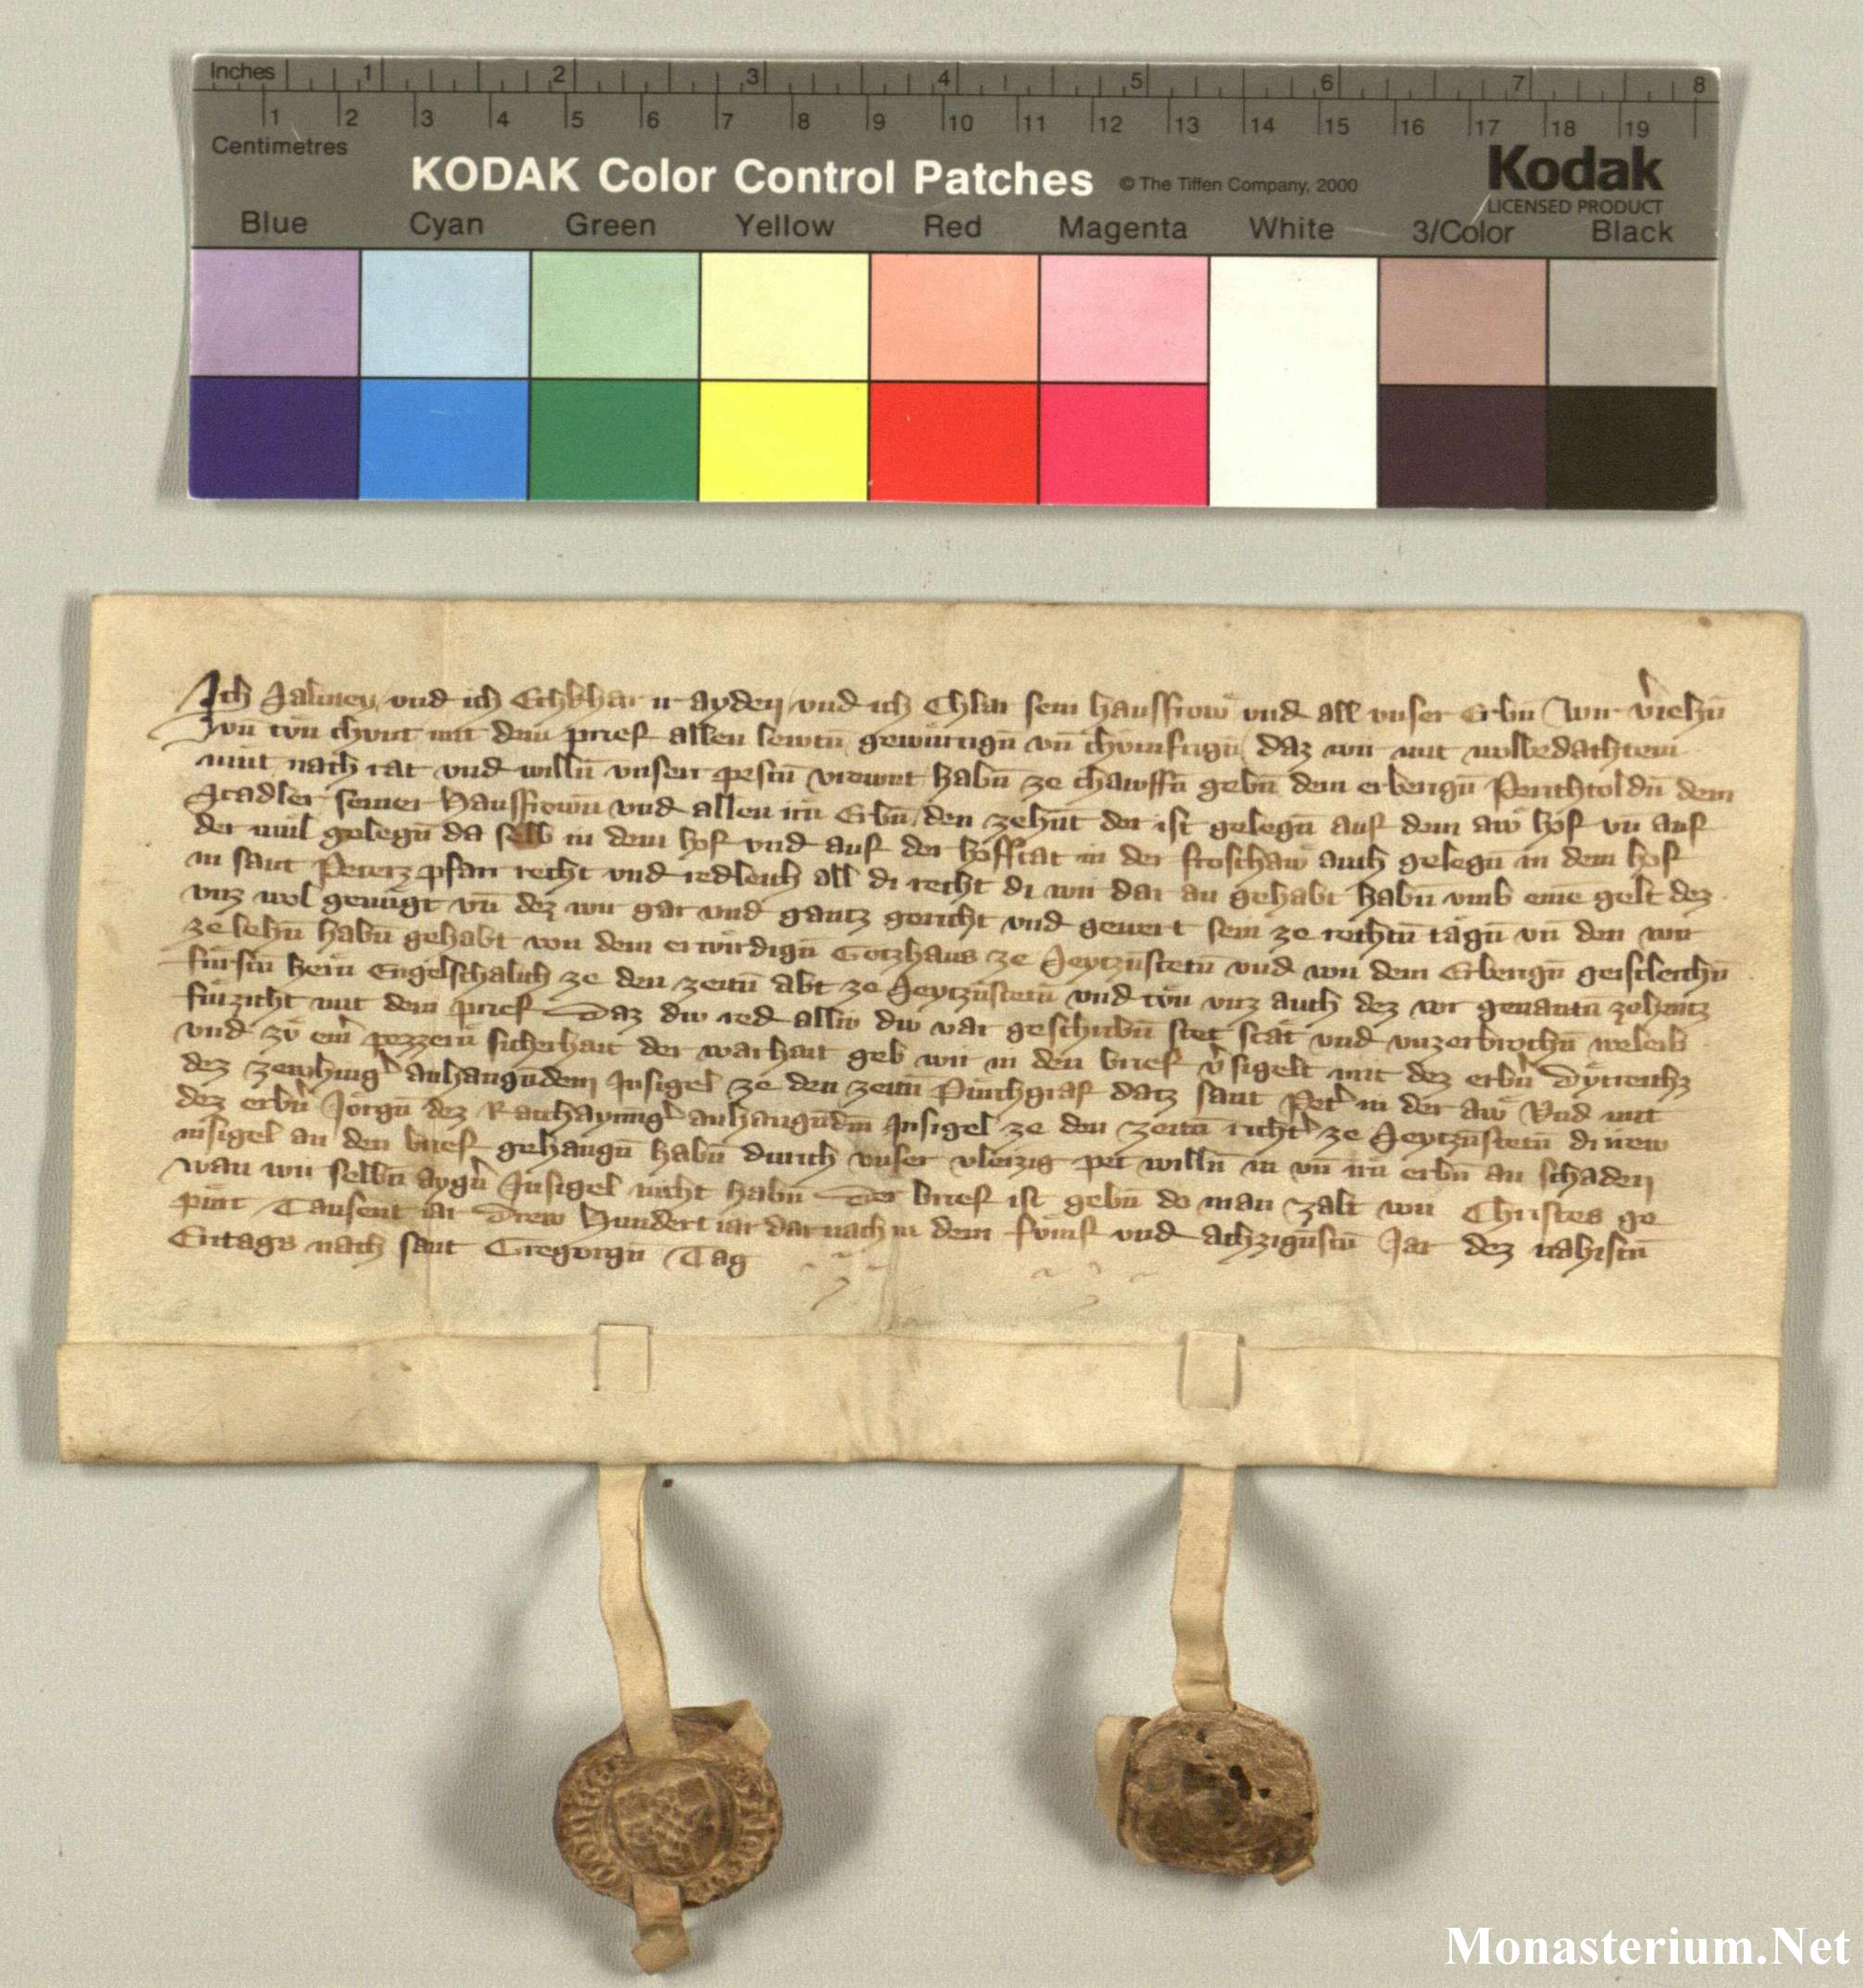 Inches 1 2 3 4 5 6 7 8
1 2 3 4 5 6 7 8 9 10 11 12 13 14 15 16 17 18 19
Centimetres
KODAK Color Control Patches © The Tiffen Company, 2000 Kodak
LICENSED PRODUCT
Blue Cyan Green Yellow Red Magenta White 3/Color Black
Ich und ich ayden und ich Chlar sein hausfrow und all unser Erbn̄ Wir
vn̄ tvn chunt mit dem prief allen lewtn̄ gewurtign̄ vn̄ chvmftign̄ daz wir mit wolbedachtem
mut nach rat und willn̄ unserr pestn̄ vrewnt habn̄ ze chawffn̄ gebn̄ dem erbergn̄ Perchtoldn̄ dem
Stadler seiner Hausfrown̄ und allen irn̄ Erbn̄ den zehn̄t der ist gelegn̄ auf dem aw hof vn̄ auf
der mul gelegn̄ da selb in dem hof und auf der hofstat in der froschaw auch gelegn̄ in dem hof
in sant Peterz pfarr recht und redleich all di recht di wir dar an gehabt habn̄ umb eine gelt dez
unz wol genugt vn̄ dez wir gar und gantz gericht und gewert sein ze rechtn̄ tagn̄ vn̄ den wir
ze lehn̄ habn̄ gehabt von dem erwirdign̄ Gotzhaus ze Seytzn̄stetn̄ und von dem Erbergn̄ geistleichn̄
furstn̄ hern̄ Engelschalich ze den zeitn̄ abt ze Seytzn̄stetn̄ und tvn unz auch dez vor genantn̄ zehentz
furzicht mit dem prief Daz diw red alliw diw var geschribn̄ stet stat und unzerbrochn̄ weleib
und zv einer pezzern̄ sicherhait der warhait geb wir in den brief v̄sigelt mit dez erbn̄ Dytreichz
dez anhangn̄dem Insigel ze den zeitn̄ Purchgraf datz sant Peter in der aw Und mit
dez erbn̄ Jorgn̄ dez anhangn̄dm Insigel ze den zeitn̄ richter ze Seytzn̄stetn̄ di irew
insigel an den brief gehangn̄ habn̄ durich unser vleizig pet willn̄ in vn̄ irn̄ erbn̄ an schaden
wan wir selbn̄ aygn̄ Insigel nicht habn̄ Der brief ist gebn̄ do man zalt von Christes ge
purt Tausent iar Drew Hundert iar dar nach in dem fvmf und achzign̄stn̄ Jar dez nahistn̄
Eritags nach sant Gregorgn̄ Tag
Monasterium.Net